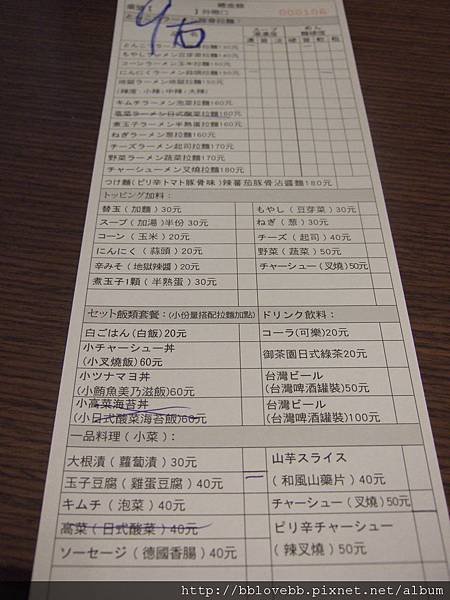 000106
もやしラーメン豆芽菜拉麵140元
コーンラーメン玉米拉麵150元
にんにくラーメン蒜味拉麵150元
地獄ラーメン地獄拉麵150元
(辣度:小辣/中辣/大辣)
キムチラーメン泡菜拉麵160元
高菜ラーメン日式酸菜拉麵160元
煮玉子ラーメン半熟蛋拉麵160元
ねぎラーメン葱拉麵160元
チーズラーメン起司拉麵170元
野菜ラーメン蔬菜拉麵170元
チャーシューメン叉燒拉麵180元
つけ麵(ピリ辛トマト豚骨味)辣蕃茄豚骨沾醬麵180元
トッピング加料:
替玉(加麵)30元 もやし(豆芽菜)30元
スープ(加湯)半份 30元 ねぎ(葱)30元
コーン(玉米)20元 チーズ(起司)40元
にんにく(蒜頭)20元 野菜(蔬菜)50元
辛みそ(地獄辣醬)20元 チャーシュー(叉燒)50元
煮玉子1顆(半熟蛋)30元
セット飯類套餐:(小份量搭配拉麵加點) ドリンク飲料:
白ごはん(白飯)20元 コーラ(可樂)20元
小チャーシュー丼 御茶園日式綠茶20元
(小叉燒飯)60元
小ツナマヨ丼 台灣ビール
(小鮪魚美乃滋飯)60元 (台灣啤酒罐裝)50元
小高菜海苔丼 台灣ビール
(小日式酸菜海苔飯)60元 (台灣啤酒罐裝)100元
一品料理(小菜):
大根漬(蘿蔔漬)30元 山芋スライス
玉子豆腐(雞蛋豆腐)40元 (和風山藥片)40元
キムチ(泡菜)40元 チャーシュー(叉燒)50元
高菜(日式酸菜)40元 ピリ辛チャーシュー
ソーセージ(德國香腸)40元 (辣叉燒)50元
http://bblovebb.pixnet.net/album